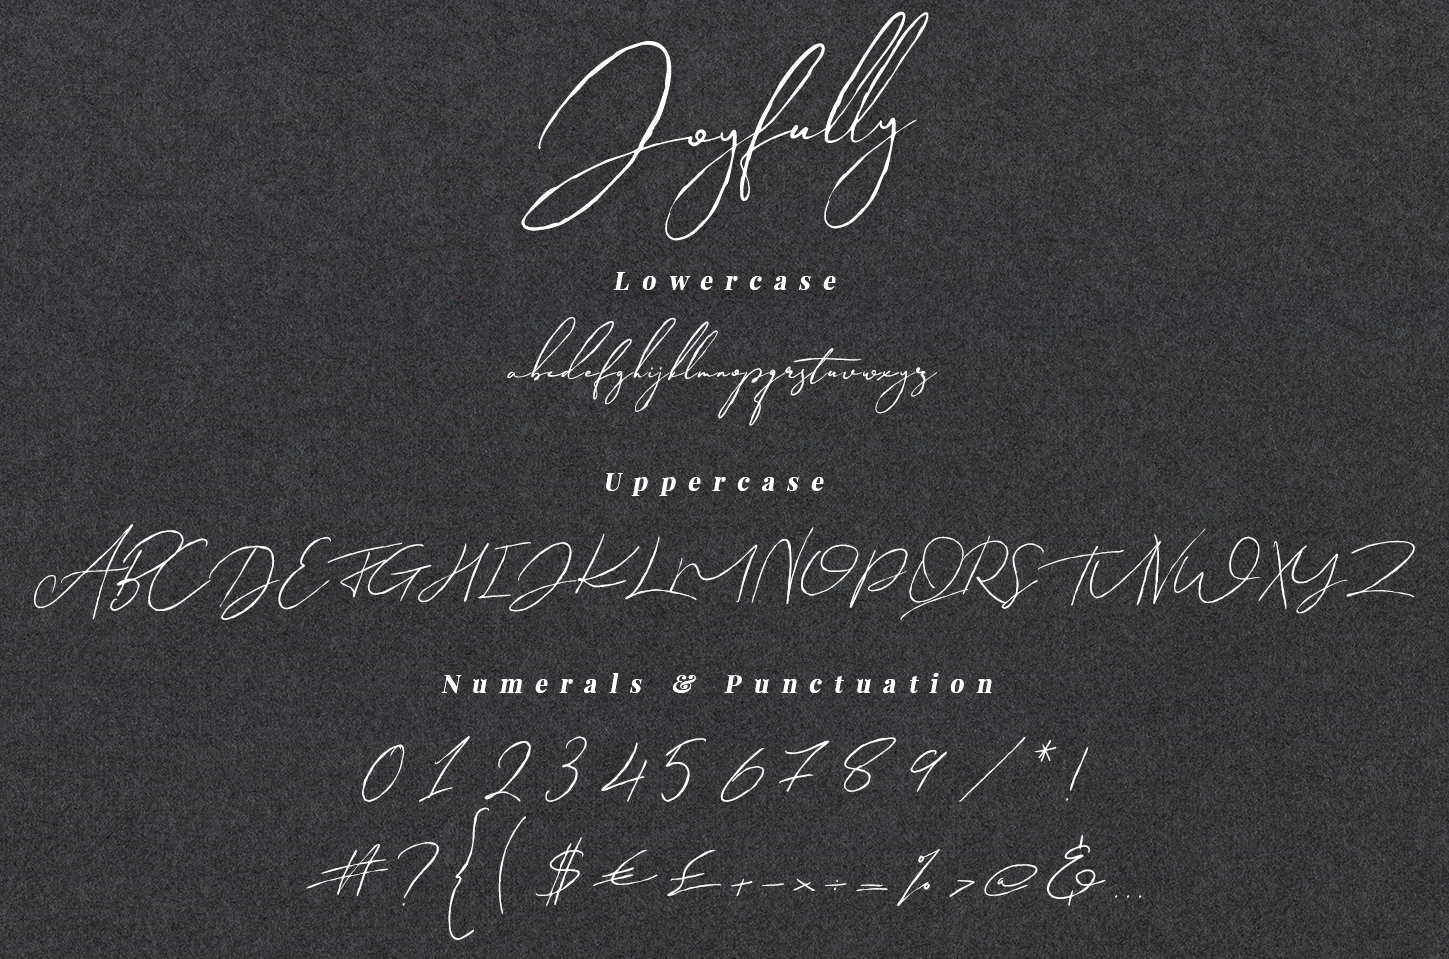 Joyfully
Lowercase
abcdefghijklmnopqrstuvwxyz
Uppercase
ABCDEFGHIJKLMNOPQRSTUVWXYZ
Numerals & Punctuation
0 1 2 3 4 5 6 7 8 9 / * !
# ? { ( $ € £ + - × ÷ = % > @ & ...